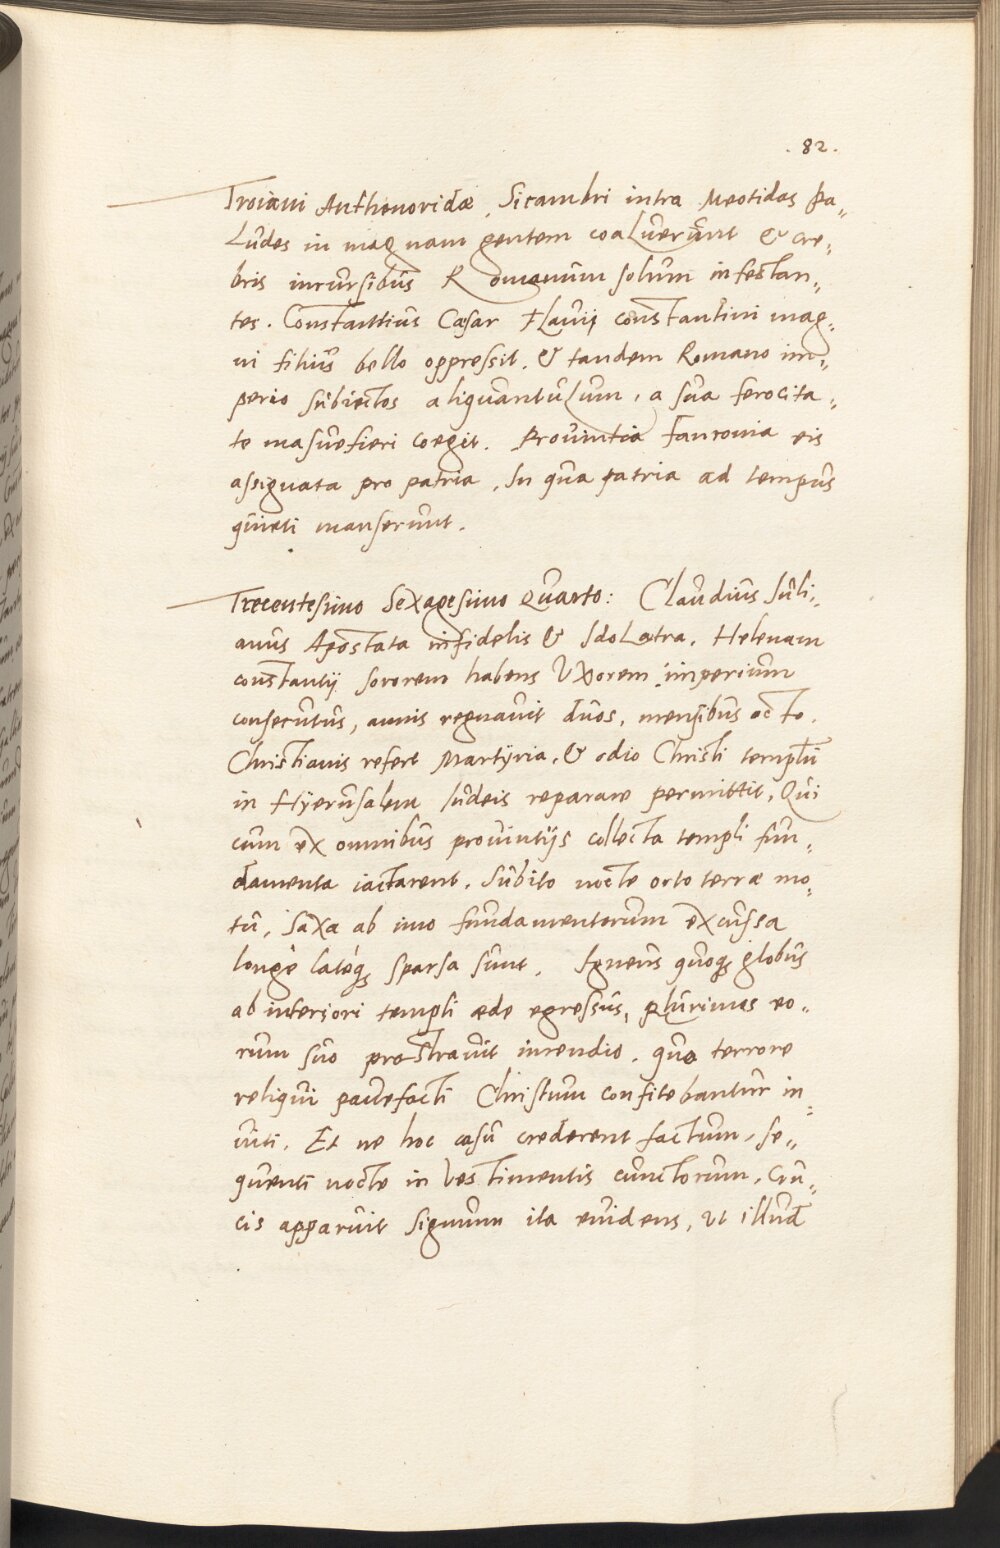 . 82 .
Troiani Anthenoridæ, Sicambri intra Meotidas pa„
Ludes in magnam gentem coaluerunt & cre„
bris incursibus Romanum solum infestan„
tes. Constantius Cæsar Flauij constantini mag„
ni filius bello oppressit. & tandem Romano im„
perio subiectos aliquantulum, a sua ferocita„
te masuefieri coegit. Prouintia Fanronia eis
assignata pro patria, In qua patria ad tempus
quieti manserunt.
Trecentesimo Sexagesimo Quarto: Claudius Iuli„
anus Apostata infidelis & IdoLatra. Helenam
constantij sororem habens Vxorem imperium
consecutus, annis regnauit duos, mensibus octo.
Christianis refert Martÿria, & odio Christi templū
in Hÿerusalem Iudeis reparare permittit, Qui
cum ex omnibus prouintijs collecta templi fun„
damenta iactarent. Subito nocte orto terræ mo„
tu, Saxa ab imo fundamentorum excussa
longè latéq; sparsa sunt. Igneus quoq; globus
ab interiori templi æde egressus, plurimes eo„
rum suo prostrauit incendio. quo terrore
reliqui pauefacti Christum confitebantur in„
uiti. Et ne hoc casu crederent factum, se„
quenti nocte in Vestimentis cunctorum, Cru„
cis apparuit signum ita euidens, ut illud